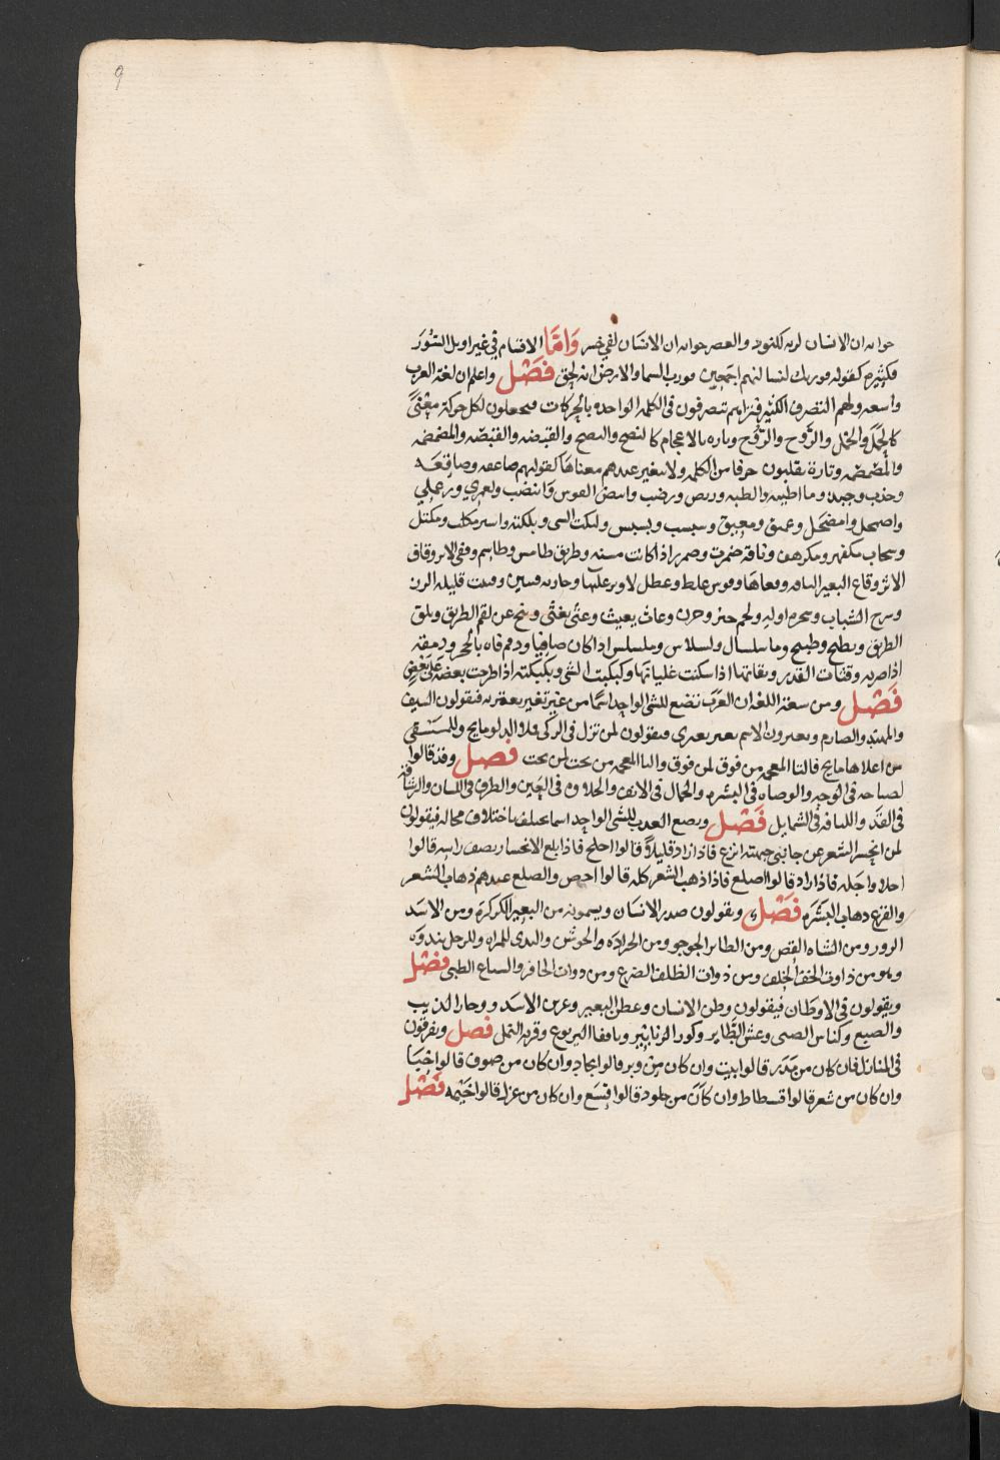 9
جوابه ان الانسان لربه لكنود والعصر جوابه ان الانسان لفي خسر وَامَّا الاقسام في غير اوايل السُّوَر
فكثيره كقوله فوربك لنسالنهم اجمعين فورب السما والارض انه لحق فصل واعلم ان لغة العرب
واسعه ولهم التصرف الكثير فتراهم يتصرفون في الكلمه الواحده بالحركات فيجعلون لكل حركة معنًى
كالحَمل والحِمل والرَّوح والرُّوح وتاره بالاعجام كالنضح والنصح والقبضه والقبصه والمضمضه
والمصمصه وتارة يقلبون حرفا من الكلمه ولا يتغير عندهم معناها كقولهم صاعقه وصاقعه
وجذب وجبذ وما اطيبه وايطبه وربص ورضب وانبض القوس وانضب ولعمري ورعملي
واضمحل وامضحل وعميق ومعيق وسبسب وبسبس ولبكت الشي وبلكته واسير مكلب ومكبل
وسحاب مكفهر ومكرهف وناقه ضمرز وضمرز اذا كانت مسنه وطريق طامس وطاسم وقفى الاثر وقاف
الاثر وقاع البعير الناقه وقعاها وقوس علط وعطل لا وتر عليها وجاريه قتين وقنيت قليله الرزء
وشرخ الشباب وشخره اوله ولحم خنز وخزن وعاث يعيث وعثى يعثى وتنح عن لقم الطريق وملق
الطريق وبطيخ وطبيخ وما سلسال ولسلاس ومسلسل اذا كان صافيا ودقم فاه بالحجر ودمقه
اذا ضربه وفثات القدر وثفاتها اذا سكنت غليانها وكبكبت الشي وبكبكته اذا طرحت بعضه على بعض
فصل ومن سعة اللغه ان العرب تضع للشي الواحد اسما من غير تغير يعتريه فيقولون السيف
والمهند والصارم ويغيرون الاسم بتغير يعتري فيقولون لمن نزل في الركي يملا الدلو مايح وللمستقي
من اعلاها ماتح فالتا المعجمه من فوق لمن فوق واليا المعجمه من تحت لمن تحت فصل وقد قالوا
لصباحه في الوجه والوضاه في البشره والجمال في الانف والحلاوه في العين والظرف في اللسان والرشاقه
في القد واللباقه في الشمايل فصل وتضع العرب للشي الواحد اسما تختلف باختلاف محاله فيقولون
لمن انحسر الشعر عن جانبي جبهته انزع فاذا زاد قليلا قالوا اجلح فاذا بلغ الانحسار نصف راسه قالوا
اجلا واجله فاذا زاد قالوا اصلع فاذا ذهب الشعر كله قالوا احص والصلع عندهم ذهاب الشعر
والقرع ذهاب البشره فصل ويقولون صدر الانسان ويسمونه من البعير الكركره ومن الاسد
الزور ومن الشاه القص ومن الطاير الجوجو ومن الجراده الجوشن والثدي للمراه وللرجل ثندوه
وهو من ذوات الخف الخلف ومن ذوات الظلف الضرع ومن ذوات الحافر والسباع الطبي فصل
ويقولون في الاوطان فيقولون وطن الانسان وعطن البعير وعرين الاسد ووجار الذيب
والضبع وكناس الظبي وعش الطاير وكور الزنابير ونافقا اليربوع وقريه النمل فصل ويفرقون
في المنازل فان كان من مدر قالوا بيت وان كان من وبر قالوا بجاد وان كان من صوف قالوا خبا
وان كان من شعر قالوا فسطاط وان كان من جلود قالوا قشع وان كان من غزل قالوا خيمه فصل